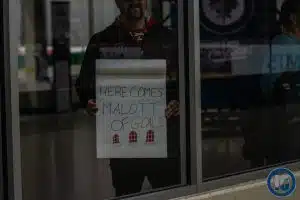 HERE COMES
MALOTT
OF GOALS